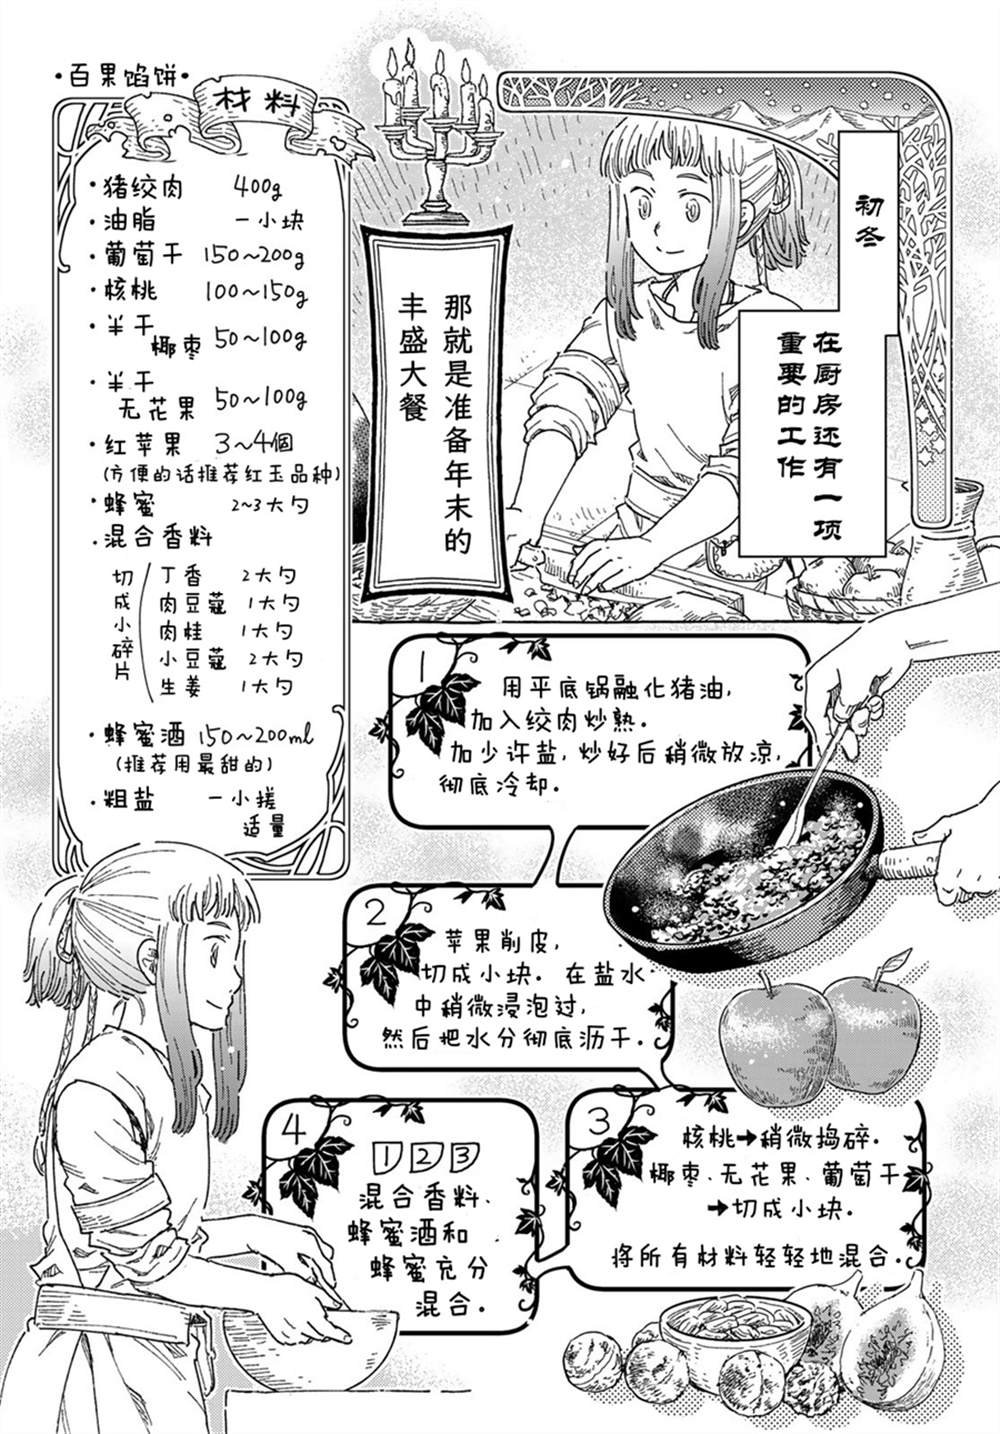 初冬
在厨房还有一项
重要的工作
那就是准备年末的
丰盛大餐
·百果馅饼·
材料
·猪绞肉 400g
·油脂 一小块
·葡萄干 150~200g
·核桃 100~150g
·半干
椰枣 50~100g
·半干
无花果 50~100g
·红苹果 3~4個
(方便的话推荐红玉品种)
·蜂蜜 2~3大勺
·混合香料
切成小碎片
丁香 2大勺
肉豆蔻 1大勺
肉桂 1大勺
小豆蔻 2大勺
生姜 1大勺
·蜂蜜酒 150~200ml
(推荐用最甜的)
·粗盐 一小搓
适量
1
用平底锅融化猪油,
加入绞肉炒熟.
加少许盐,炒好后稍微放凉,
彻底冷却.
2
苹果削皮,
切成小块.在盐水
中稍微浸泡过,
然后把水分彻底沥干.
3
核桃→稍微捣碎.
椰枣、无花果、葡萄干
→切成小块.
将所有材料轻轻地混合.
4
1 2 3
混合香料、
蜂蜜酒和
蜂蜜充分
混合.